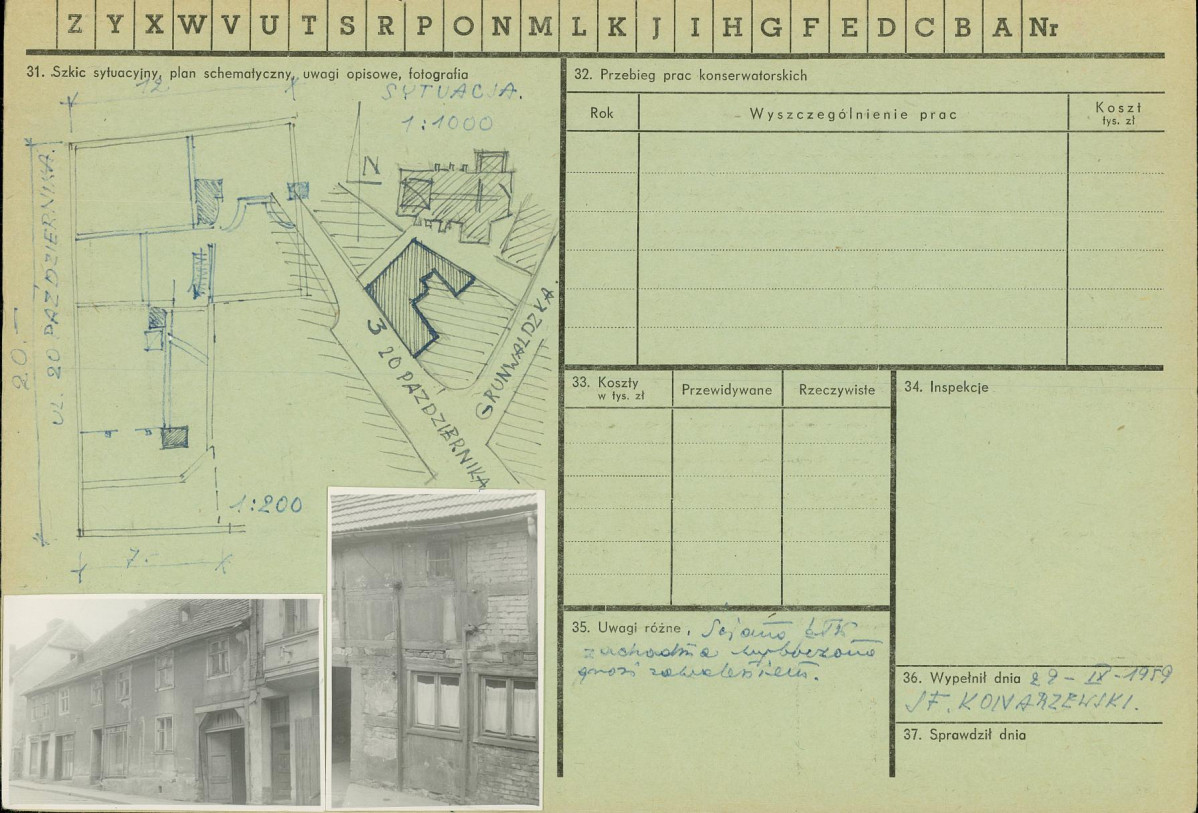 Z Y X W V U T S R P O N M L K J I H G F E D C B A Nr
31. Szkic sytuacyjny, plan schematyczny, uwagi opisowe, fotografia
12.
SYTUACJA.
1:1000
N
UL. 20 PAŹDZIERNIKA.
20.—
3
20 PAŹDZIERNIKA
GRUNWALDZKA.
1:200
7.
32. Przebieg prac konserwatorskich
Rok
Wyszczególnienie prac
Koszt
tys. zł
33. Koszty
w tys. zł
Przewidywane
Rzeczywiste
34. Inspekcje
35. Uwagi różne.
zachodnia wyboczona
grozi zawaleniem.
36. Wypełnił dnia 29-IX-1959
37. Sprawdził dnia